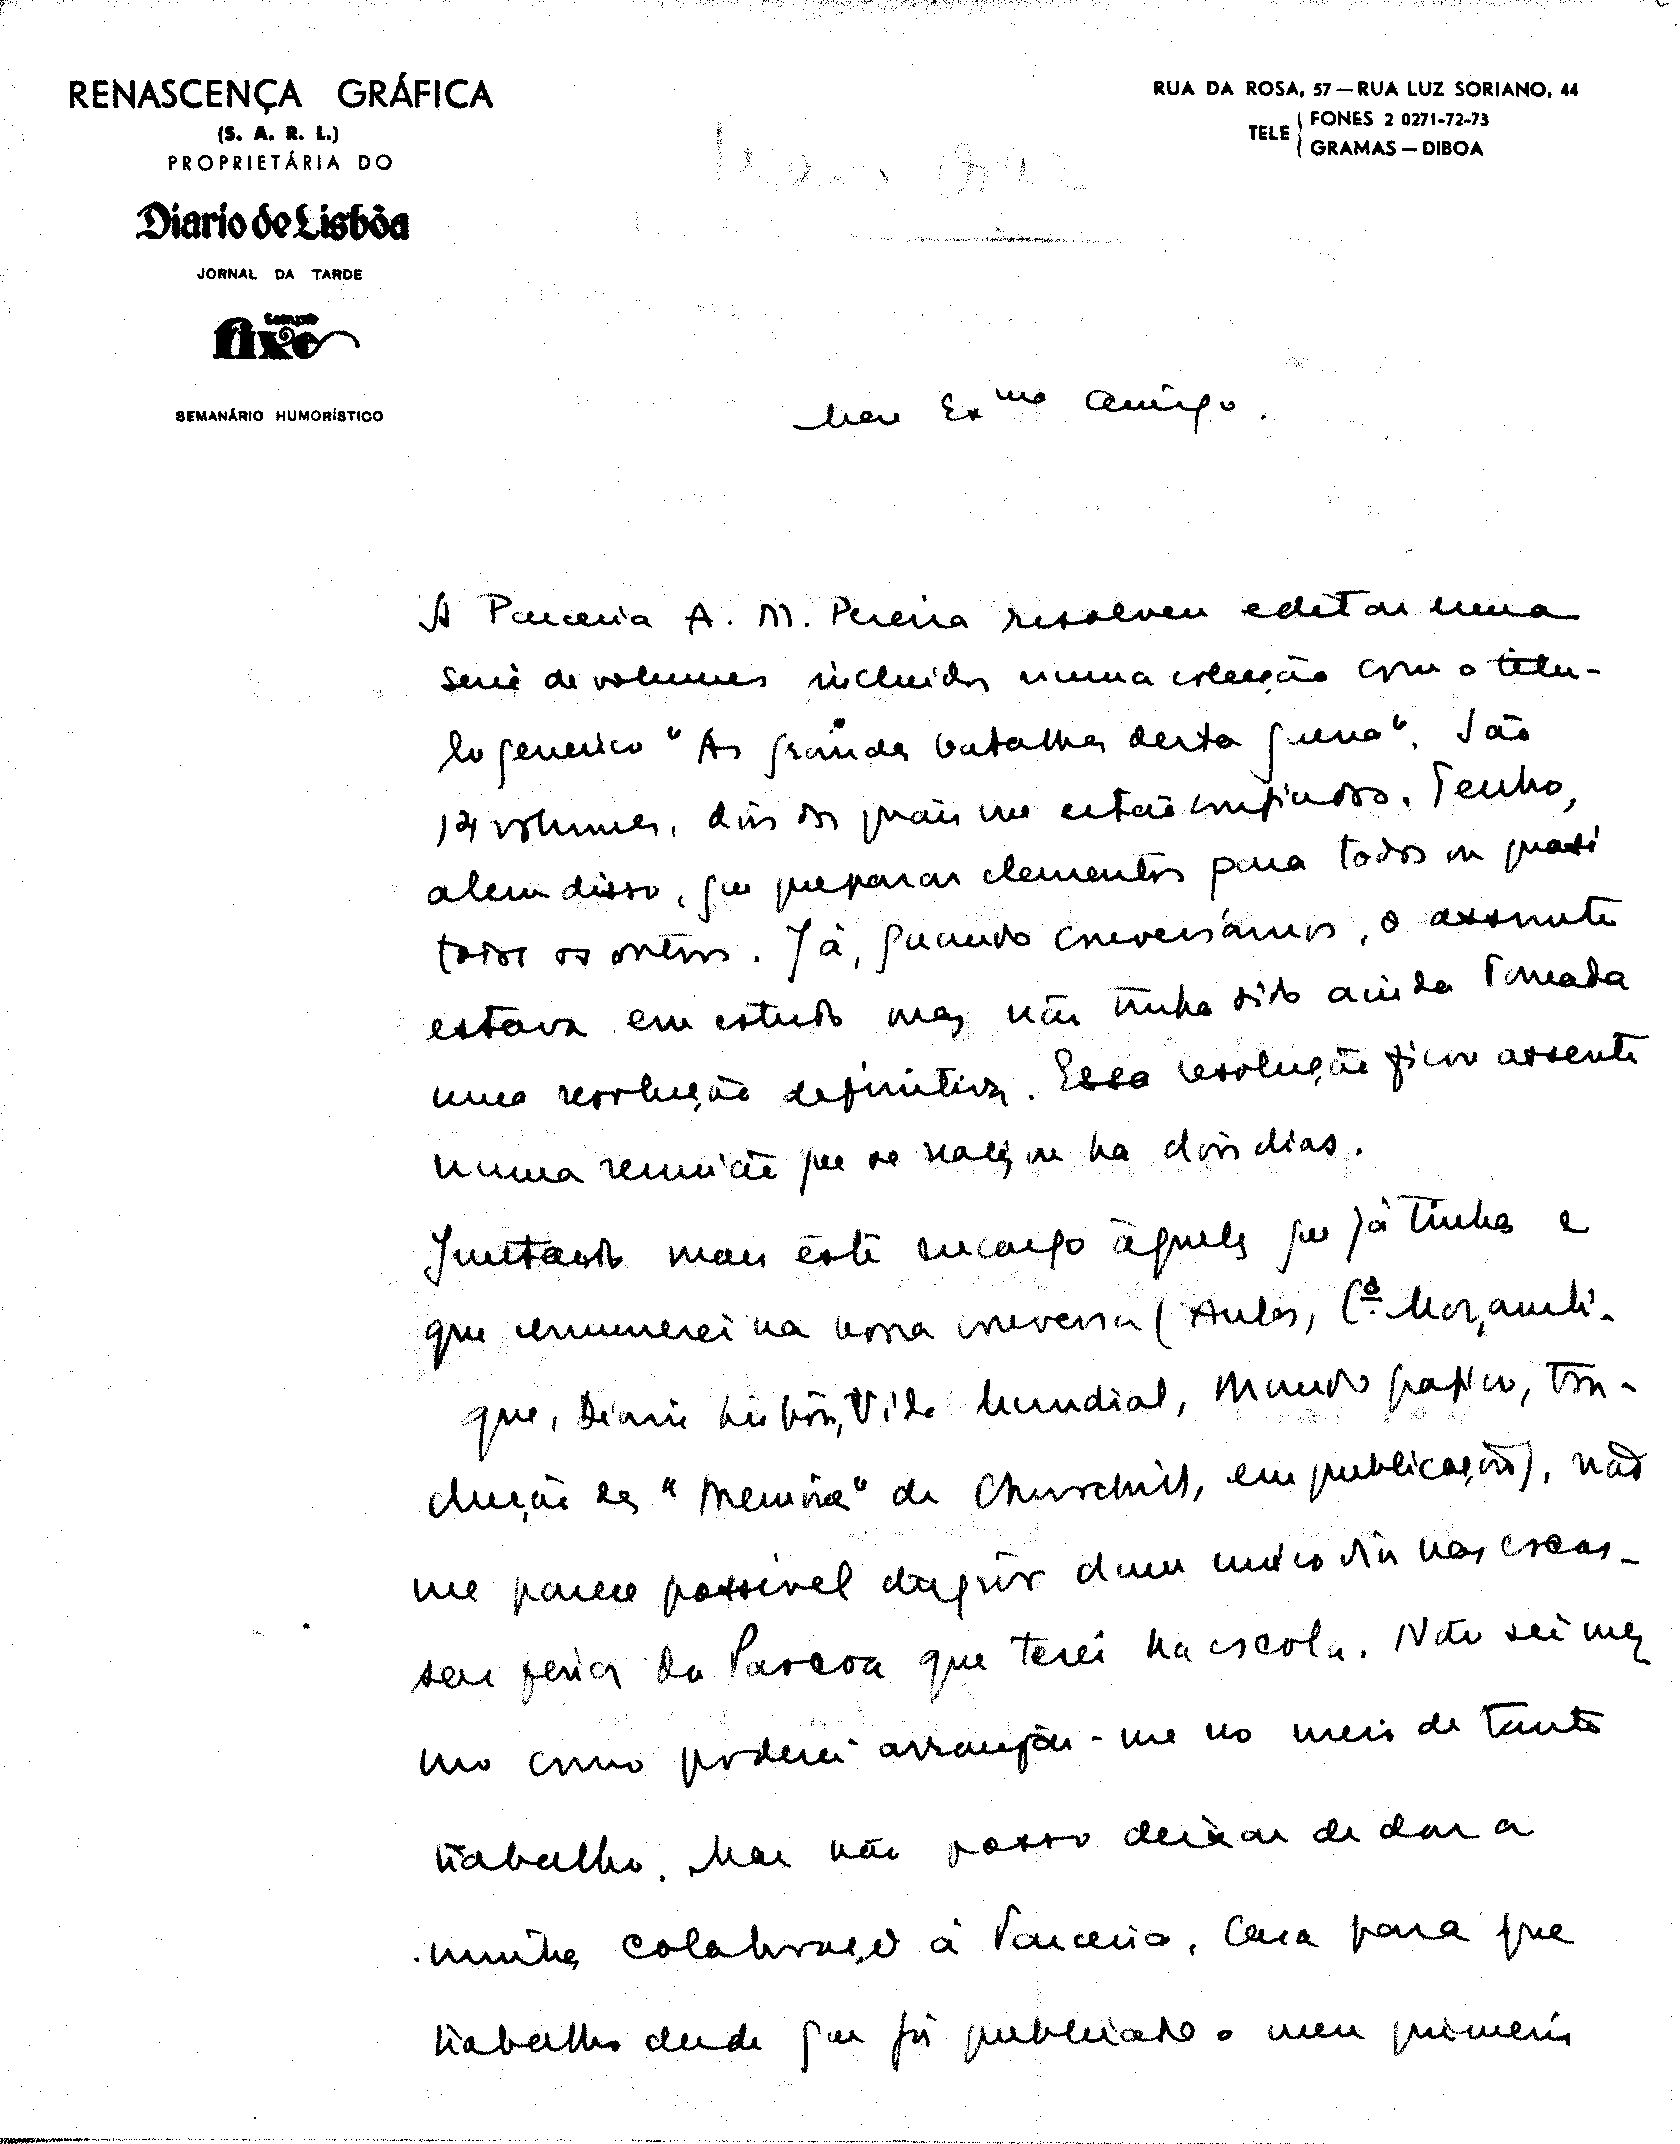 RENASCENÇA GRÁFICA
(S. A. R. L.)
PROPRIETÁRIA DO
Diario de Lisbôa
JORNAL DA TARDE
Sempre
fixe
SEMANÁRIO HUMORÍSTICO
RUA DA ROSA, 57 — RUA LUZ SORIANO, 44
TELE
FONES 2 0271-72-73
GRAMAS — DIBOA
Meu Exmo Amigo.
A Parceria A. M. Pereira resolveu editar uma
serie de volumes incluidos numa colecção com o titu-
lo generico "As grandes batalhas desta guerra". São
14 volumes, dois dos quais me estão confiados. Tenho,
alem disso, que preparar elementos para todos ou quasi
todos os outros. Já, quando conversámos, o assunto
estava em estudo mas não tinha sido ainda tomada
uma resolução definitiva. Essa resolução ficou assente
numa reunião que se realizou ha dois dias.
Juntando mais êste encargo àqueles que já tinha e
que enumerei na nossa conversa (Aulas, Cª Moçambi-
que, Diario Lisbôa, Vida Mundial, Mundo grafico, tra-
dução das "Memórias" de Churchill, em publicação), não
me parece possivel dispôr dum unico dia nas escas-
sas ferias da Pascoa que terei na escola. Não sei mes
mo como poderei arranjar-me no meio de tanto
trabalho. Mas não posso deixar de dar a
minha colaboração á Parceria, Casa para que
trabalho desde que foi publicado o meu primeiro